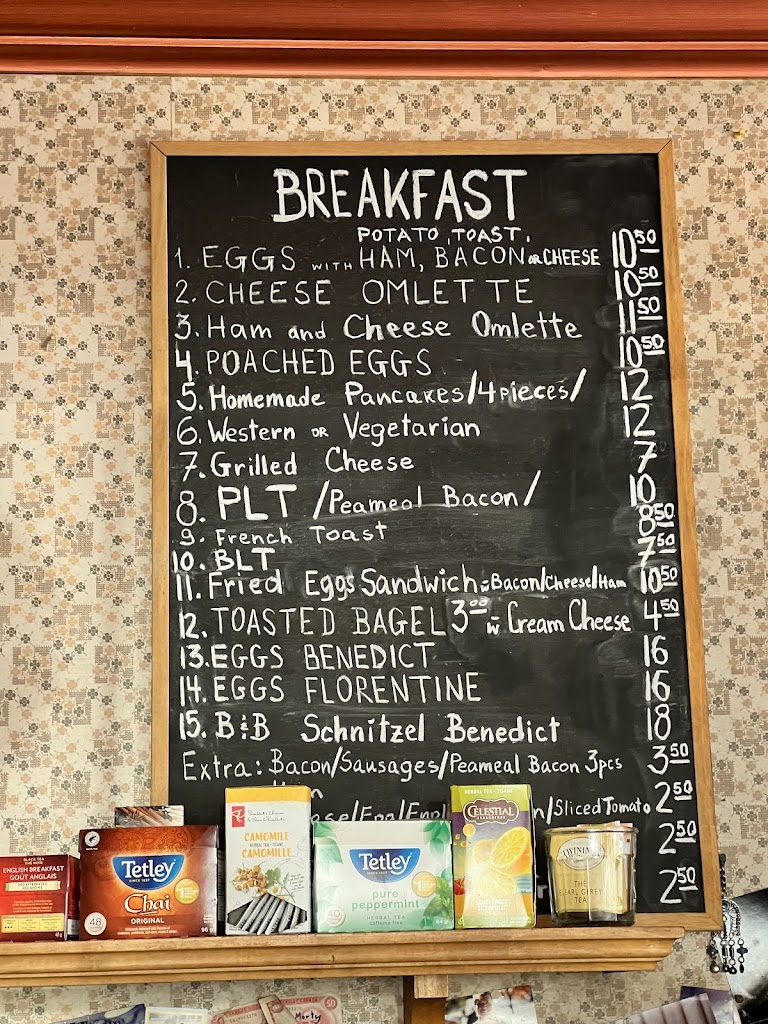 BREAKFAST
POTATO, TOAST,
1. EGGS WITH HAM, BACON OR CHEESE 10 50
2. CHEESE OMLETTE 10 50
3. Ham and Cheese Omlette 11 50
4. POACHED EGGS 10 50
5. Homemade Pancakes/4 pieces/ 12
6. Western OR Vegetarian 12
7. Grilled Cheese 7
8. PLT /Peameal Bacon/ 10
9. French Toast 8 50
10. BLT 7 50
11. Fried Eggs Sandwich w Bacon/Cheese/Ham 10 50
12. TOASTED BAGEL 3 00 w Cream Cheese 4 50
13. EGGS BENEDICT 16
14. EGGS FLORENTINE 16
15. B&B Schnitzel Benedict 18
Extra: Bacon/Sausages/Peameal Bacon 3pcs 3 50
/Sliced Tomato 2 50
2 50
2 50
BLACK TEA
THÉ NOIR
ENGLISH BREAKFAST
GOÛT ANGLAIS
Tetley
SINCE 1837
Chai
ORIGINAL
48
CAMOMILE
HERBAL TEA • TISANE
CAMOMILLE
Tetley
SINCE 1837
pure
peppermint
HERBAL TEA
caffeine free
40
HERBAL TEA • TISANE
CELESTIAL
TWININGS
THE
EARL GREY
TEA
50
Marty